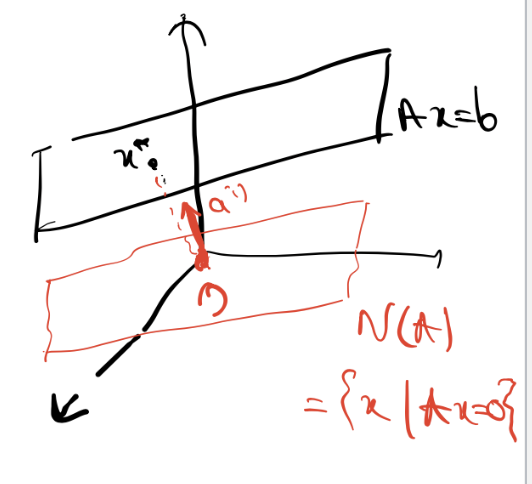 Ax=b
x*
a⁽ⁱ⁾
0
N(A)
={x|Ax=0}